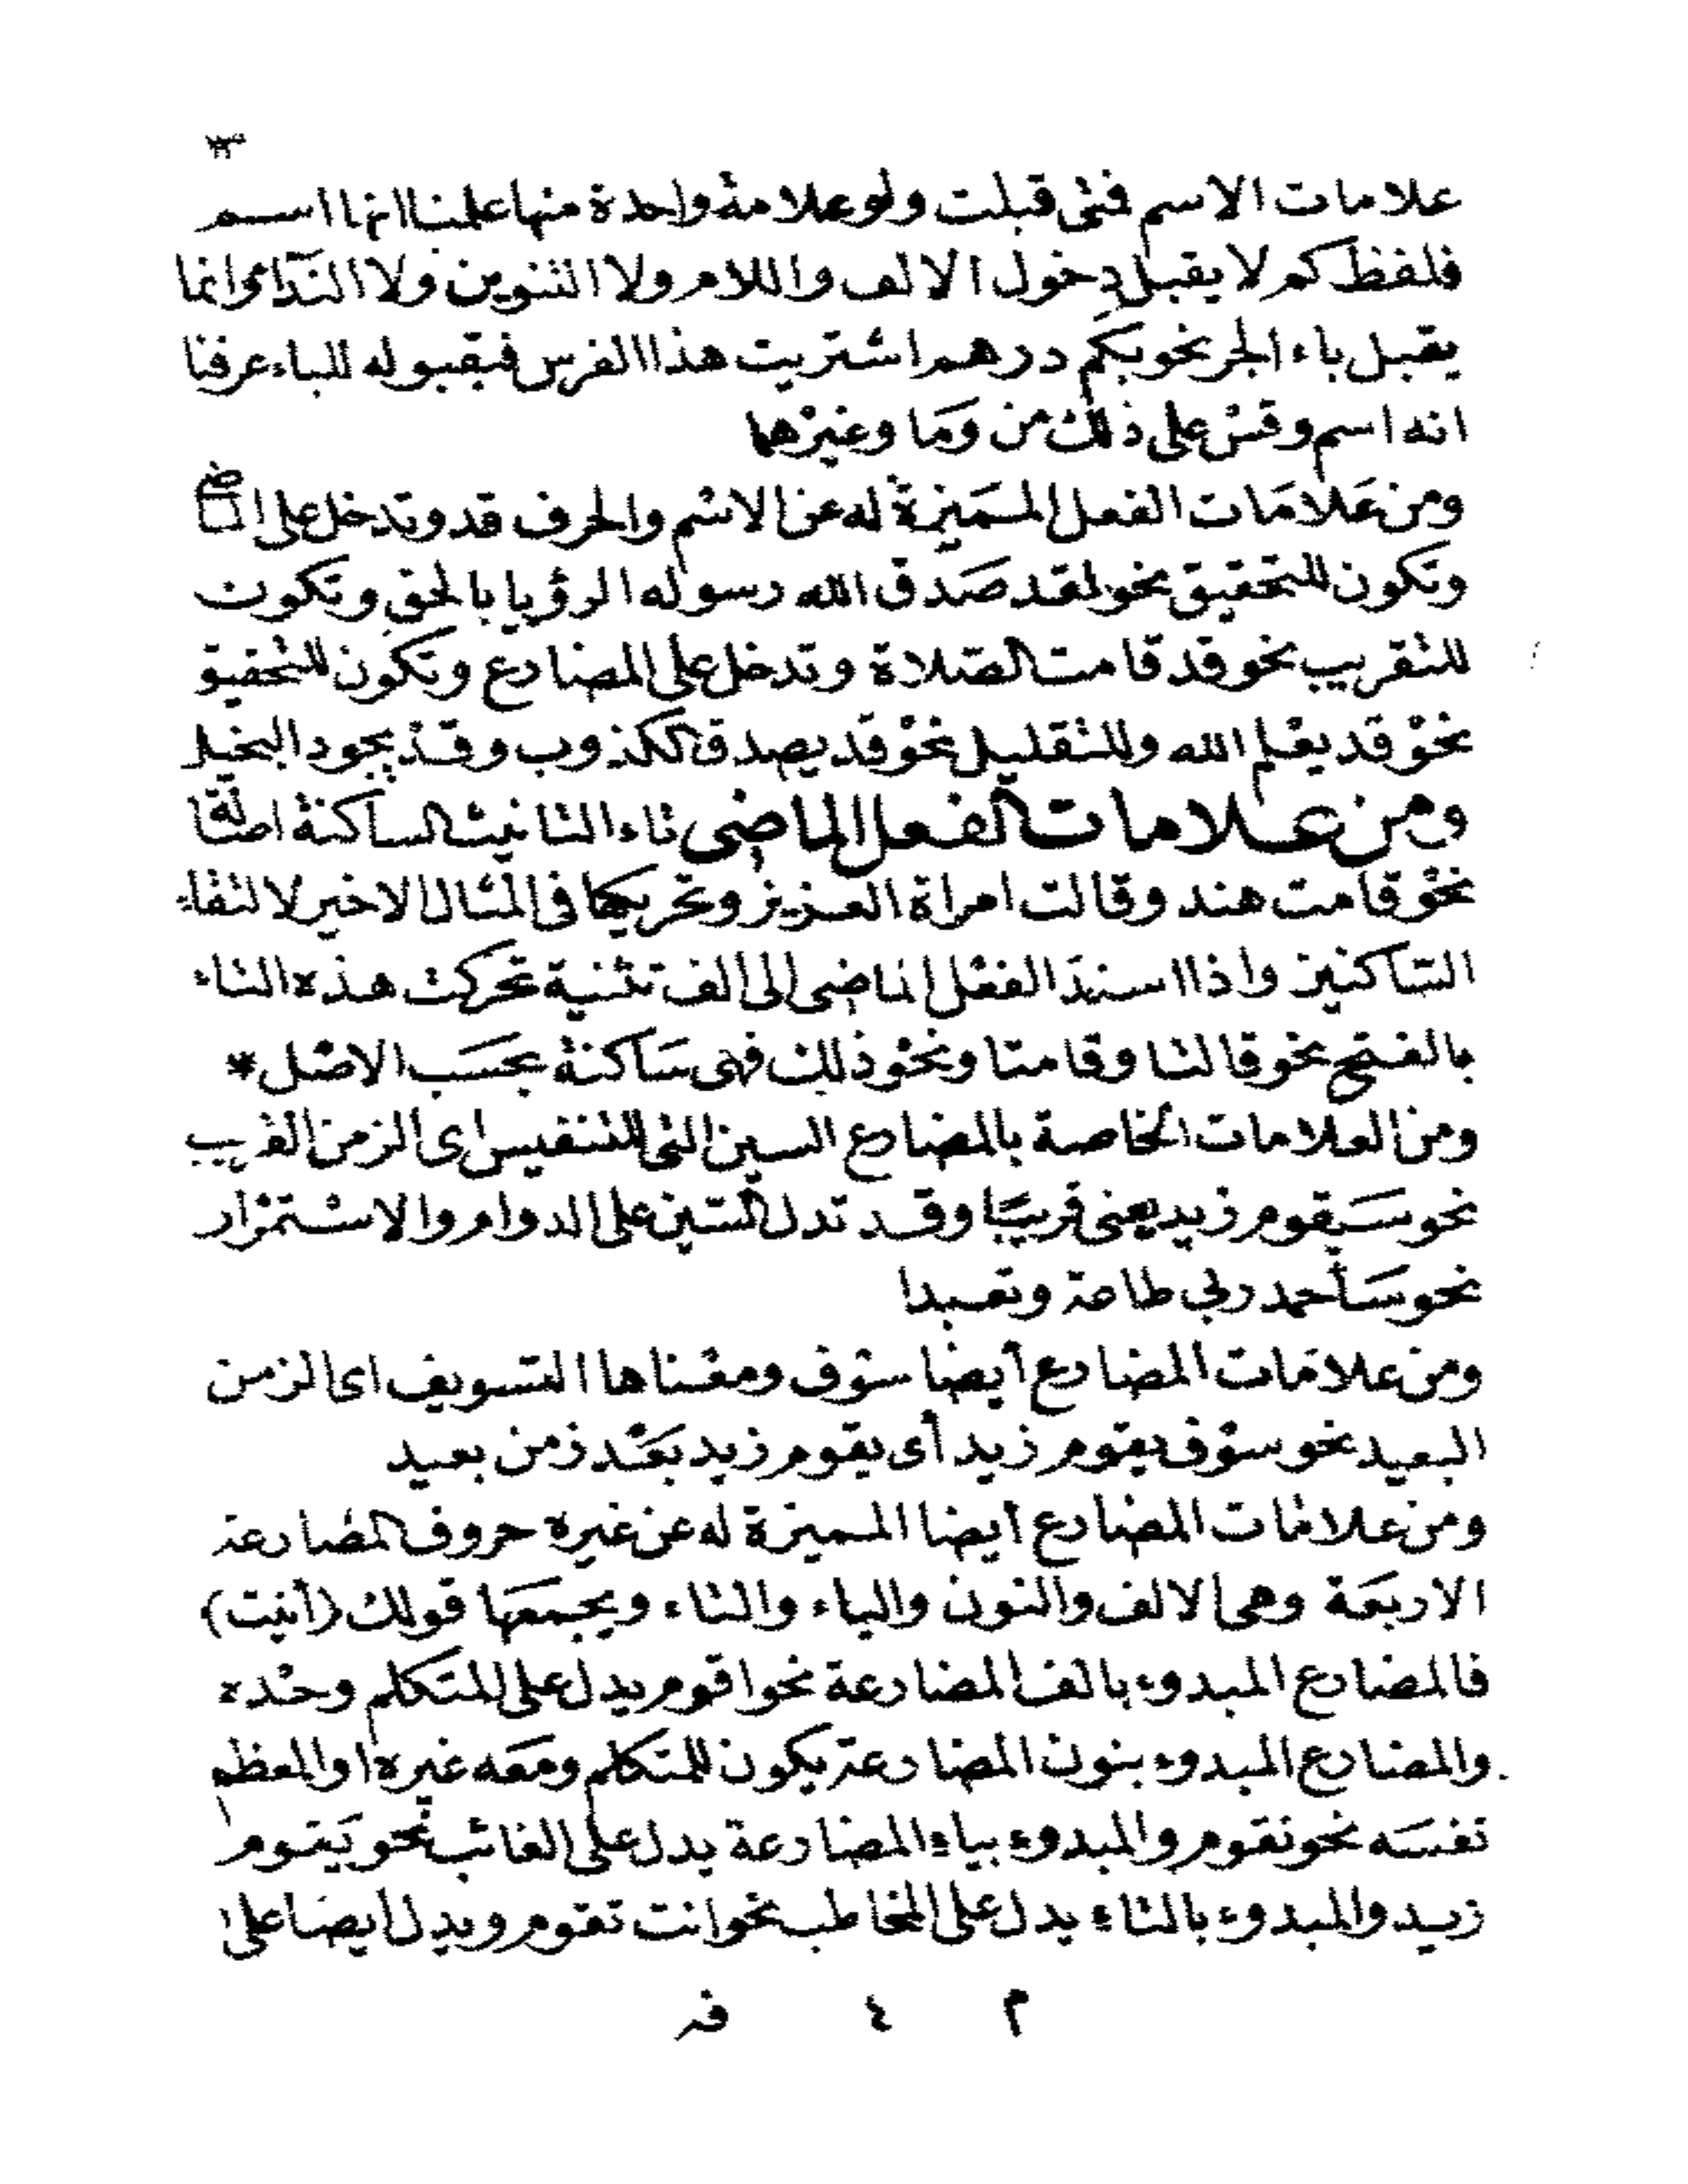 علامات الاسم فمتى قبلت ولو علامة واحدة منها علمنا انها اسم
فلفظ كم لا يقبل دخول الالف واللام ولا التنوين ولا النداء وانما
يقبل باء الجر نحو بكم درهم اشتريت هذا الفرس فبقبوله للباء عرفنا
انه اسم وقس على ذلك من وما وغيرهما
ومن علامات الفعل المميزة له عن الاسم والحرف قد وتدخل على الماضى
وتكون للتحقيق نحو لقد صدق الله رسوله الرؤيا بالحق وتكون
للتقريب نحو قد قامت الصلاة وتدخل على المضارع وتكون للتحقيق
نحو قد يعلم الله وللتقليل نحو قد يصدق الكذوب وقد يجود البخيل
ومن علامات الفعل الماضى تاء التانيث الساكنة اصالة
نحو قامت هند وقالت امراة العزيز وتحريكها فى المثال الاخير لالتقاء
الساكنين واذا اسند الفعل الماضى الى الف تثنية تحركت هذه التاء
بالفتح نحو قالتا وقامتا ونحو ذلك فهى ساكنة بحسب الاصل *
ومن العلامات الخاصة بالمضارع السين التى للتنفيس اى الزمن القريب
نحو سيقوم زيد يعنى قريبا وقد تدل السين على الدوام والاستمرار
نحو سأحمد ربي طاعة وتعبدا
ومن علامات المضارع أيضا سوف ومعناها التسويف اى الزمن
البعيد نحو سوف يقوم زيد أى يقوم زيد بعد زمن بعيد
ومن علامات المضارع أيضا المميزة له عن غيره حروف المضارعة
الاربعة وهى الالف والنون والياء والتاء ويجمعها قولك (أنيت)
فالمضارع المبدوء بالف المضارعة نحو اقوم يدل على المتكلم وحده
والمضارع المبدوء بنون المضارعة يكون للمتكلم ومعه غيره او المعظم
نفسه نحو نقوم والمبدوء بياء المضارعة يدل على الغائب نحو يقوم
زيد والمبدوء بالتاء يدل على المخاطب نحو انت تقوم ويدل ايضا على
م ٤ فه